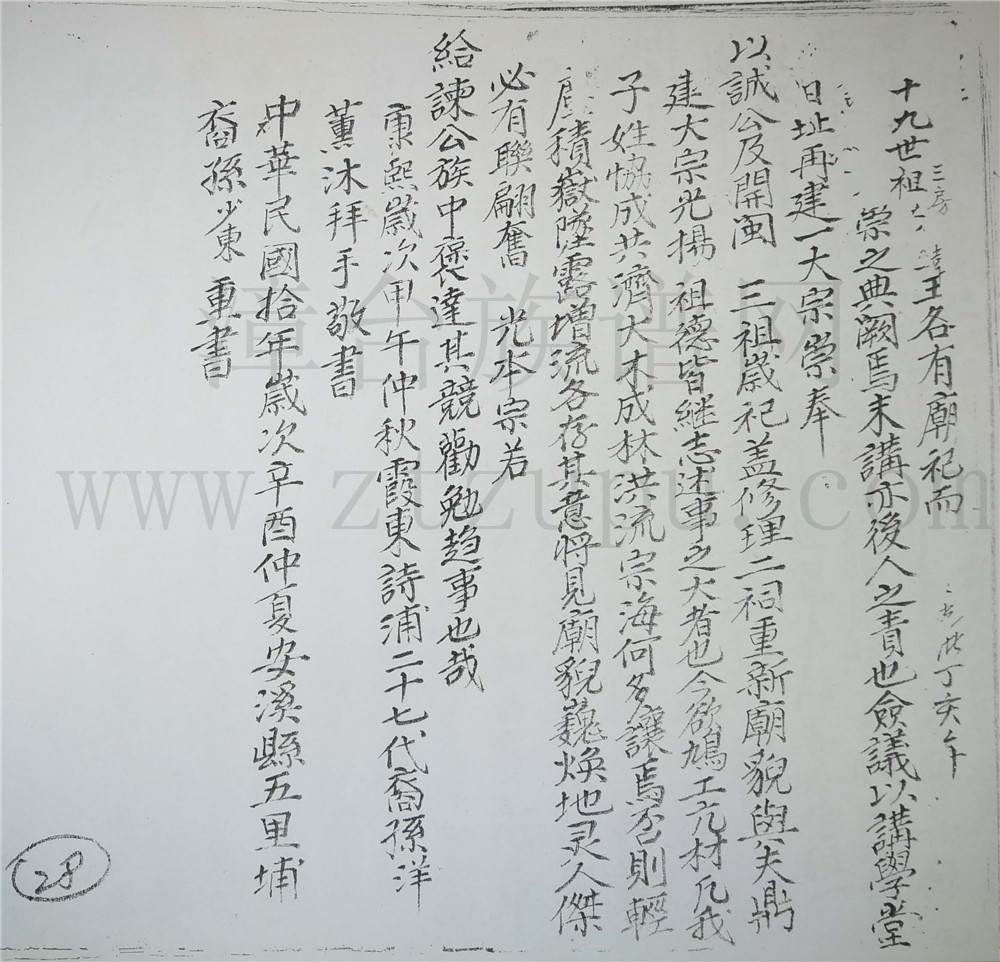 十九世祖 三房 各有廟祀而
崇之典闕焉未講亦後人之責也僉議以講學堂
旧址再建一大宗崇奉
以誠公及開闽 三祖歲祀盖修理二祠重新廟貌與夫鼎
建大宗光揚 祖德皆継志述事之大者也今欲鳩工亢材凡我
子姓恊成共濟大木成林洪流宗海何多讓焉否則輕
塵積嶽墜露增流各存其意將見廟貌巍焕地灵人傑
必有聯翩奮 光本宗若
給諫公族中褒達其競勸勉趋事也哉
康熙歲次甲午仲秋霞東詩浦二十七代裔孫洋
薰沐拜手敬書
中華民國拾年歲次辛酉仲夏安溪縣五里埔
裔孫少東 重書
28
漳台族谱网
www.zuzupu.com